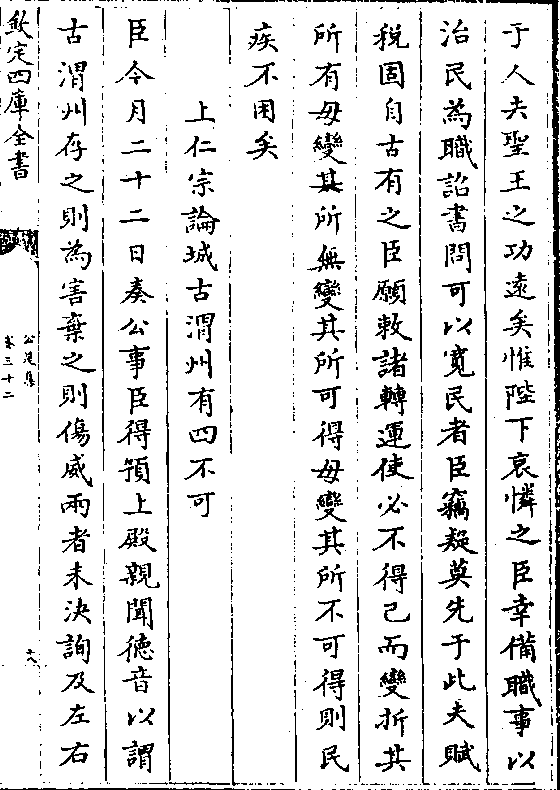 于人夫聖王之功遠矣惟陛下哀憐之臣幸備職事以
治民為職詔書問可以寛民者臣竊疑莫先于此夫賦
税固自古有之臣願敕諸轉運使必不得已而變折其
所有毋變其所無變其所可得毋變其所不可得則民
疾不困矣
上仁宗論城古渭州有四不可
臣今月二十二日奏公事臣得預上殿親聞徳音以謂
古渭州存之則為害棄之則傷威兩者未決詢及左右
欽定四庫全書
公是集
卷三十二
十八